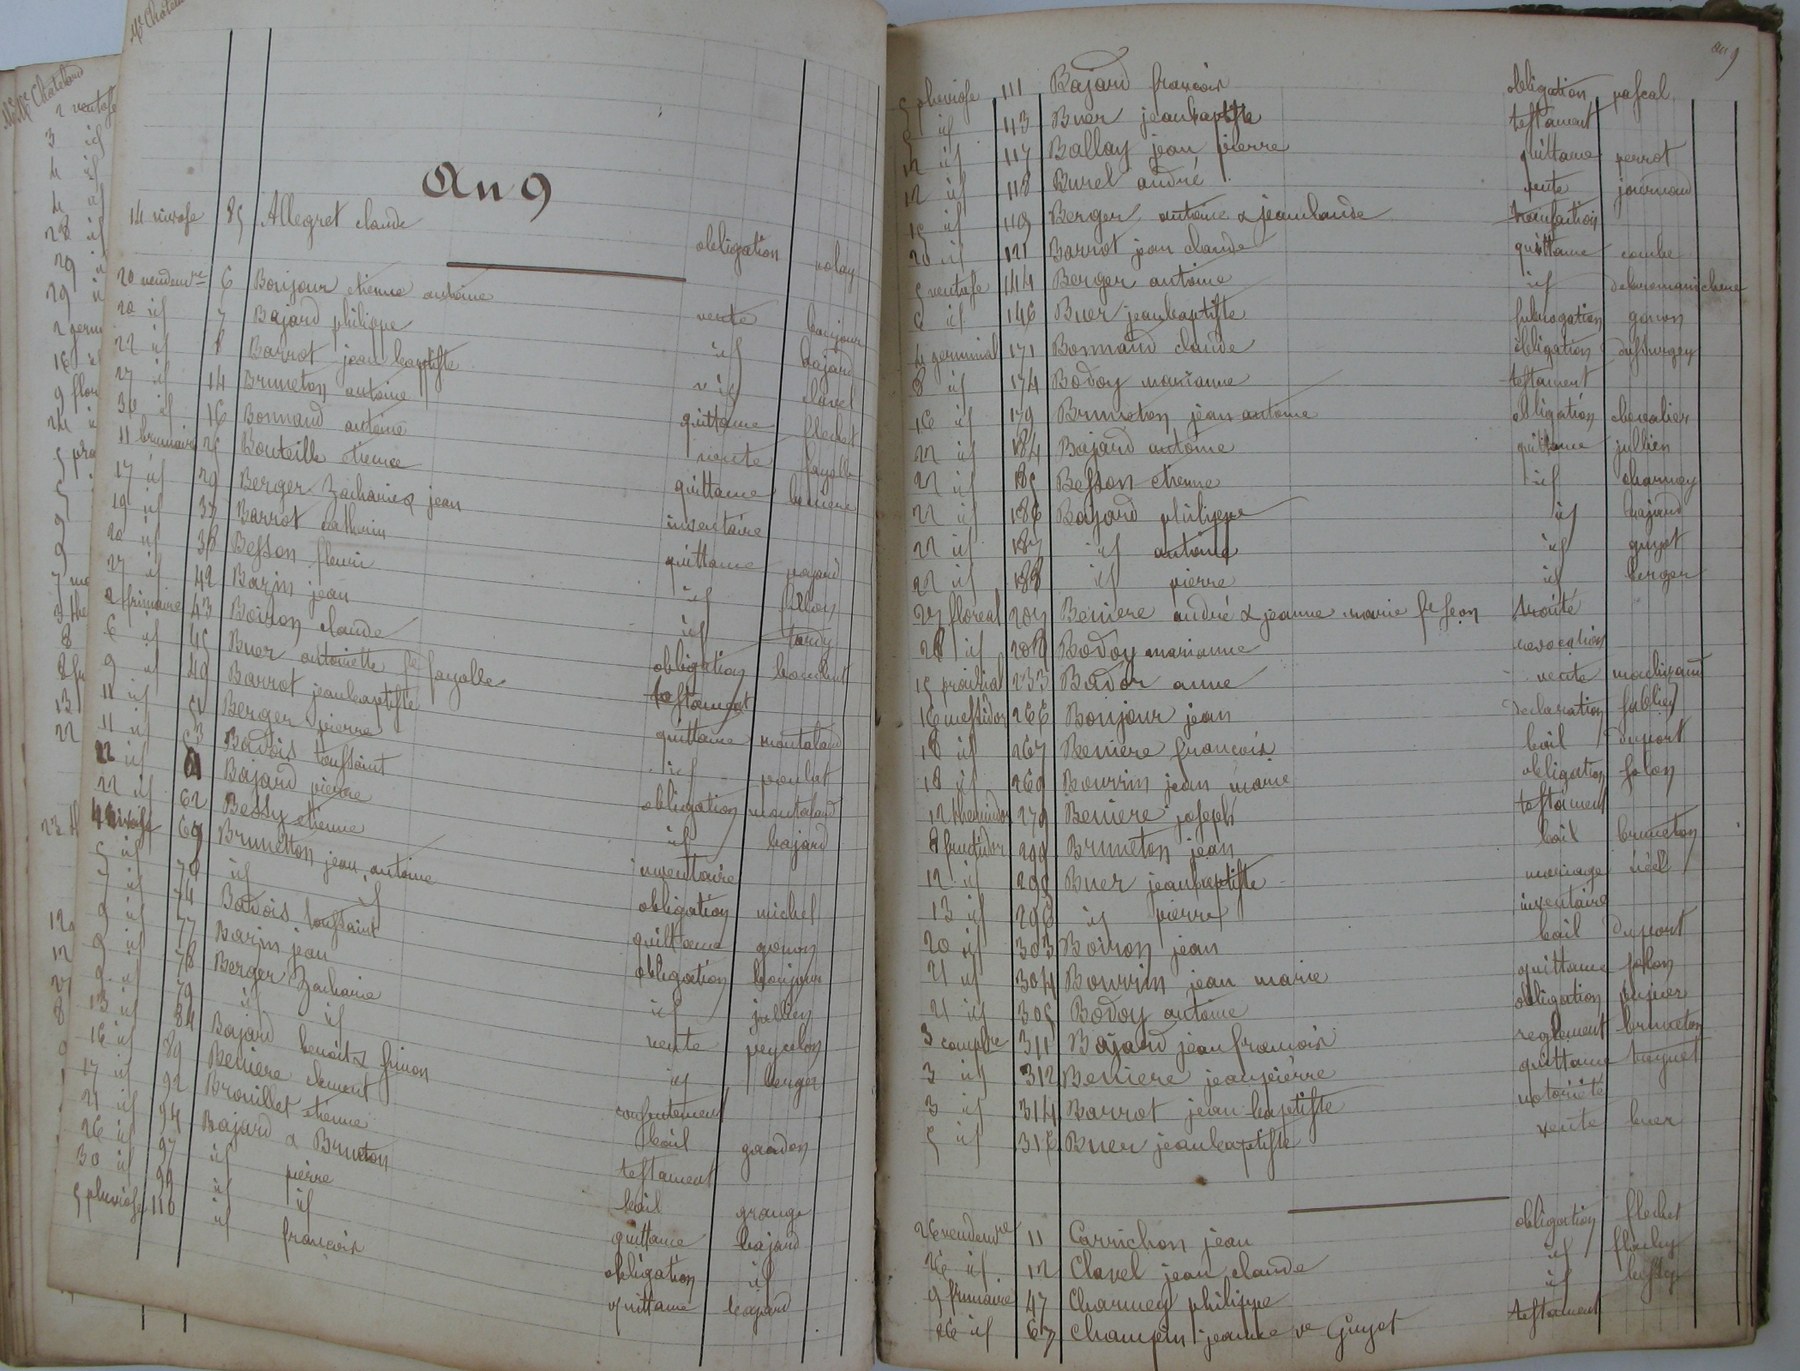 Me Chatelard
2 ventose
3 id
4 id
4 id
28 id
29
29
2 germ
16
9 flor
24
5 pra
An 9
14 nivose 85 Allegret claude obligation volay
20 vendemre 6 Bonjour etienne antoine vente bonjour
20 id 7 Bajard philippe id bajard
22 id 8 Barrot jean baptiste id clavel
27 id 14 Bruneton antoine quittance flechet
30 id 16 Bonnand antoine vente fayolle
11 brumaire 26 Bouteille etienne quittance beniere
17 id 29 Berger Zacharie & jean inventaire
19 id 37 Barrot catherin quittance bajard
20 id 38 Besson fleuri id fillon
27 id 42 Barin jean id tardy
2 frimaire 43 Boiron claude obligation
6 id 45 Buer antoinette fe fayolle testament
9 id 49 Barrot jeanbaptiste quittance montaland
11 id 51 Berger pierre id
11 id 53 Bavois toussaint obligation montaland
22 id Bajard pierre id bajard
22 id 62 Bessy etienne inventaire
4 nivose 69 Brunetton jean antoine obligation michel
5 id 70 id id quittance gonon
7 id 74 Bavois toussaint obligation bonjour
9 id 77 Barin jean id jullien
9 id 78 Berger Zacharie vente peycelon
9 id 79 id id id berger
13 id 84 Bajard benoit & frimon consentement
16 id 89 Beniere clement bail gandon
17 id 92 Brouillet etienne testament
21 id 94 Bajard & Bruneton bail grange
26 id 97 id pierre quittance bajard
30 id 99 id id obligation id
5 pluviose 110 id francois quittance bajard
an 9
5 pluviose 111 Bajard francois obligation pascal
5 id 113 Buer jeanbaptiste testament
12 id 117 Ballay jean pierre quittance perrot
12 id 118 Burel andré vente journaud
15 id 119 Berger antoine & jeanclaude transaction
20 id 121 Barrot jean claude quittance combe
5 ventose 144 Berger antoine id delaromanichere
6 id 146 Buer jeanbaptiste subrogation gonon
4 germinal 171 Bonnand claude obligation dussurgey
8 id 174 Bodoy marianne testament
16 id 179 Bruneton jean antoine obligation chevalier
22 id 184 Bajard antoine quittance jullien
22 id 185 Besson etienne id charmey
22 id 186 Bajard philippe id bajard
22 id 187 id antoine id guyot
22 id 188 id pierre id berger
27 floreal 207 Beniere andré & jeanne marie traité
28 id 208 Bodoy marianne revocation
15 prairial 233 Bador anne vente
16 messidor 266 Bonjour jean declaration
18 id 267 Beniere francois bail duport
18 id 269 Bourrin jean marie obligation folon
12 thermidor 279 Beniere joseph testament
8 fructidor 290 Bruneton jean bail bruneton
12 id 299 Buer jeanbaptiste mariage néel
13 id 298 id pierre inventaire
20 id 303 Boiron jean bail duport
21 id 304 Bourrin jean marie quittance folon
21 id 305 Bodoy antoine obligation
3 complre 311 Bajard jean francois reglement bruneton
3 id 312 Beniere jeanpierre quittance
3 id 314 Barrot jean baptiste notoriété
5 id 316 Buer jeanbaptiste vente buer
26 vendemre 11 Carrichon jean obligation flechet
26 id 12 Clavel jean claude id flechet
9 frimaire 47 Charmey philippe id
26 id 67 Champin jeanne ve Guyot testament